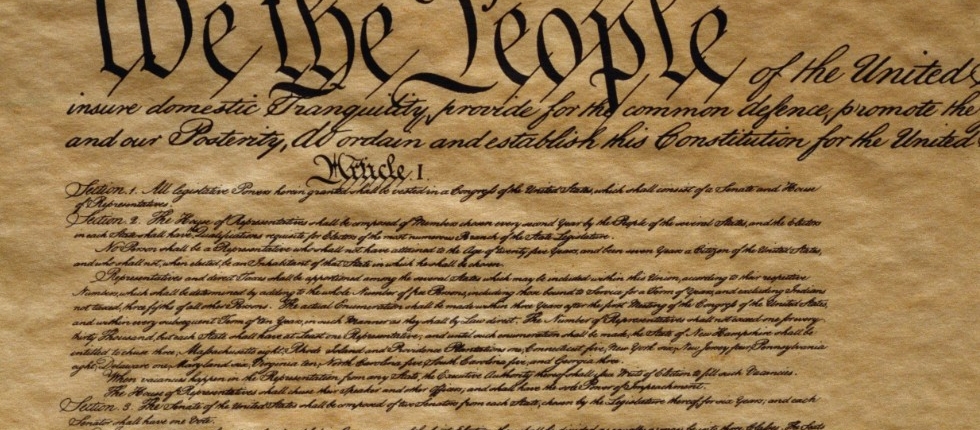 We the People of the United
insure domestic Tranquility, provide for the common defence, promote the
and our Posterity, do ordain and establish this Constitution for the United
Article I.
Section 1. All legislative Powers herein granted shall be vested in a Congress of the United States, which shall consist of a Senate and House
of Representatives.
Section 2. The House of Representatives shall be composed of Members chosen every second Year by the People of the several States, and the Electors
in each State shall have the Qualifications requisite for Electors of the most numerous Branch of the State Legislature.
No Person shall be a Representative who shall not have attained to the Age of twenty five Years, and been seven Years a Citizen of the United States,
and who shall not, when elected, be an Inhabitant of that State in which he shall be chosen.
Representatives and direct Taxes shall be apportioned among the several States which may be included within this Union, according to their respective
Numbers, which shall be determined by adding to the whole Number of free Persons, including those bound to Service for a Term of Years, and excluding Indians
not taxed, three fifths of all other Persons. The actual Enumeration shall be made within three Years after the first Meeting of the Congress of the United States,
and within every subsequent Term of ten Years, in such Manner as they shall by Law direct. The Number of Representatives shall not exceed one for every
thirty Thousand, but each State shall have at Least one Representative; and until such enumeration shall be made, the State of New Hampshire shall be
entitled to chuse three, Massachusetts eight, Rhode Island and Providence Plantations one, Connecticut five, New York six, New Jersey four, Pennsylvania
eight, Delaware one, Maryland six, Virginia ten, North Carolina five, South Carolina five, and Georgia three.
When vacancies happen in the Representation from any State, the Executive Authority thereof shall issue Writs of Election to fill such Vacancies.
The House of Representatives shall chuse their Speaker and other Officers; and shall have the sole Power of Impeachment.
Section 3. The Senate of the United States shall be composed of two Senators from each State, chosen by the Legislature thereof, for six Years; and each
Senator shall have one Vote.